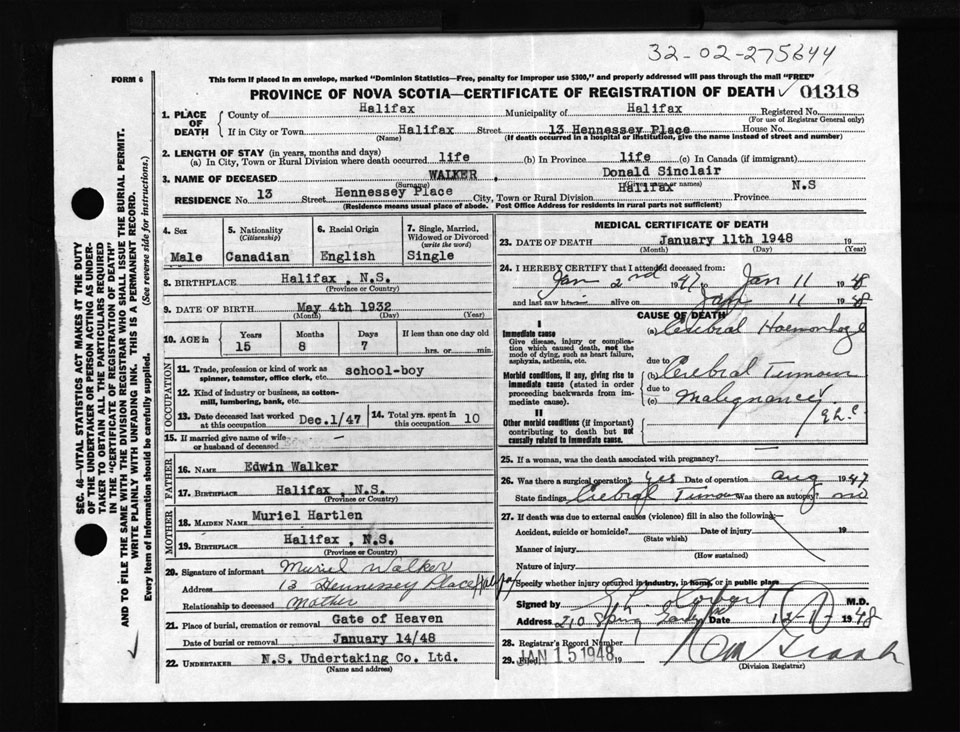 32-02-275644
FORM 6
This form if placed in an envelope, marked "Dominion Statistics—Free, penalty for improper use $300," and properly addressed will pass through the mail "FREE"
PROVINCE OF NOVA SCOTIA—CERTIFICATE OF REGISTRATION OF DEATH ✓ 01318
1. PLACE OF DEATH
County of Halifax Municipality of Halifax Registered No.
(For use of Registrar General only)
If in City or Town Halifax Street 13 Hennessey Place House No.
(Name) (If death occurred in a hospital or institution, give the name instead of street and number)
2. LENGTH OF STAY (in years, months and days)
(a) In City, Town or Rural Division where death occurred life (b) In Province life (c) In Canada (if immigrant)
3. NAME OF DECEASED WALKER, Donald Sinclair
(Surname) (Given name or names)
RESIDENCE No. 13 Street Hennessey Place City, Town or Rural Division Halifax Province N.S
(Residence means usual place of abode. Post Office Address for residents in rural parts not sufficient)
4. Sex 5. Nationality (Citizenship) 6. Racial Origin 7. Single, Married, Widowed or Divorced (write the word)
Male Canadian English Single
8. BIRTHPLACE Halifax, N.S.
(Province or Country)
9. DATE OF BIRTH May 4th 1932
(Month) (Day) (Year)
10. AGE in Years Months Days If less than one day old
15 8 7 hrs. or min.
OCCUPATION
11. Trade, profession or kind of work as spinner, teamster, office clerk, etc. school-boy
12. Kind of industry or business, as cotton-mill, lumbering, bank, etc.
13. Date deceased last worked at this occupation Dec.1/47 14. Total yrs. spent in this occupation 10
15. If married give name of wife or husband of deceased —
FATHER
16. NAME Edwin Walker
17. BIRTHPLACE Halifax, N.S.
(Province or Country)
MOTHER
18. MAIDEN NAME Muriel Hartlen
19. BIRTHPLACE Halifax, N.S.
(Province or Country)
20. Signature of informant Muriel Walker
Address 13 Hennessey Place Halifax
Relationship to deceased Mother
21. Place of burial, cremation or removal Gate of Heaven
Date of burial or removal January 14/48
22. UNDERTAKER N.S. Undertaking Co. Ltd.
(Name and address)
MEDICAL CERTIFICATE OF DEATH
23. DATE OF DEATH January 11th 1948 19
(Month) (Day) (Year)
24. I HEREBY CERTIFY that I attended deceased from:
Jan 2nd 1947 to Jan 11 1948
and last saw him alive on Jan 11 1948
CAUSE OF DEATH
I
Immediate cause
Give disease, injury or complication which caused death, not the mode of dying, such as heart failure, asphyxia, asthenia, etc.
(a) Cerebral Haemorrhage
due to
Morbid conditions, if any, giving rise to immediate cause (stated in order proceeding backwards from immediate cause).
(b) Cerebral Tumour
due to
(c) Malignancy
II
Other morbid conditions (if important) contributing to death but not causally related to immediate cause.
25. If a woman, was the death associated with pregnancy?
26. Was there a surgical operation? Yes Date of operation Aug 1947
State findings Cerebral Tumour Was there an autopsy? no
27. If death was due to external causes (violence) fill in also the following:—
Accident, suicide or homicide? Date of injury 19
(State which)
Manner of injury
(How sustained)
Nature of injury
Specify whether injury occurred in industry, in home, or in public place
Signed by M.D.
Address 210 Spring Garden Date 1948
28. Registrar's Record Number
29. Filed JAN 15 1948 19
(Division Registrar)
SEC. 46—VITAL STATISTICS ACT MAKES IT THE DUTY
OF THE UNDERTAKER OR PERSON ACTING AS UNDER-
TAKER TO OBTAIN ALL THE PARTICULARS REQUIRED
IN THE "CERTIFICATE OF REGISTRATION OF DEATH"
AND TO FILE THE SAME WITH THE DIVISION REGISTRAR WHO SHALL ISSUE THE BURIAL PERMIT.
WRITE PLAINLY WITH UNFADING INK. THIS IS A PERMANENT RECORD.
Every item of information should be carefully supplied. (See reverse side for instructions.)